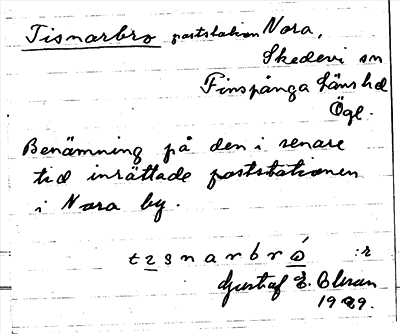 Tisnarbro poststation Nora,
Skedevi sn
Finspånga länshd
Ögl.
Benämning på den i senare
tid inrättade poststationen
i Nora by.
tɪsnarbró :r
Gustaf E.